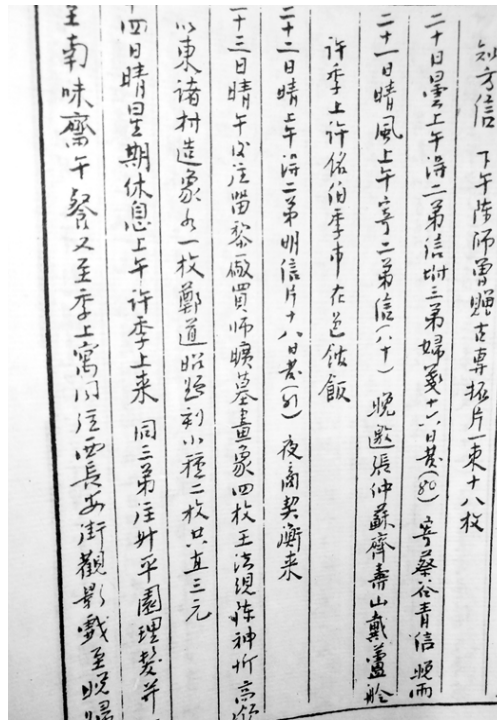 知方信　下午陳師曾贈古專拓片一束十八枚
二十日曇上午得二弟信坿三弟婦箋十六日發(80)　寄蔡谷青信晚雨
二十一日晴風上午寄二弟信(八十)　晚邀張仲蘇齊壽山戴蘆舲
許季上許銘伯季巿在邑館飯
二十二日晴上午得二弟明信片十八日發(81)　夜商契衡來
二十三日晴午後往留黎廠買師曠墓畫象四枚王法現陳神忻高領
以東諸村造象各一枚鄭道昭題刻小種二枚共直三元
十四日晴星期休息上午許季上来　同三弟往升平園理髮并
至南味齋午餐又至季上寓同往西長安街觀影戲至晚歸